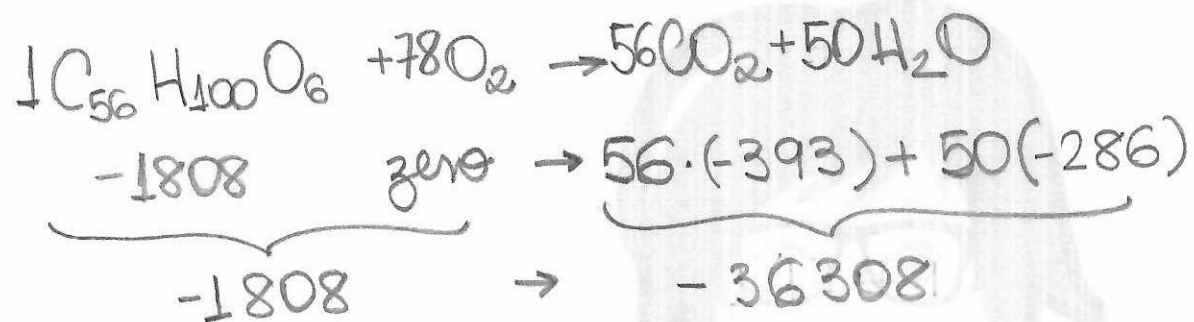 1C₅₆H₁₀₀O₆ +78O₂ → 56CO₂ + 50H₂O
-1808 zero → 56·(-393) + 50(-286)
-1808 → -36308